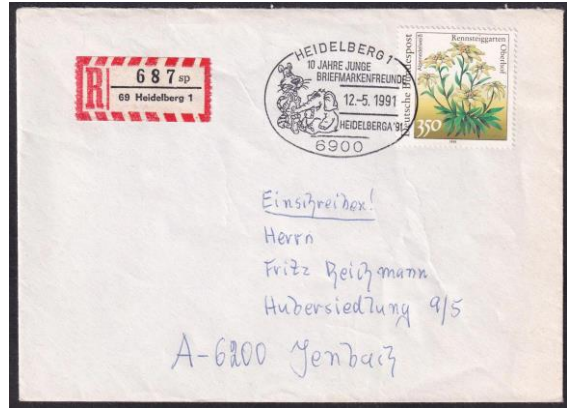 R
687 sp
69 Heidelberg 1
HEIDELBERG 1
10 JAHRE JUNGE
BRIEFMARKENFREUNDE
12.-5. 1991
HEIDELBERGA '91
6900
Deutsche Bundespost
Rennsteiggarten
Oberhof
350
Einschreiben!
Herrn
Fritz Reichmann
Hubersiedlung 9/5
A-6200 Jenbach